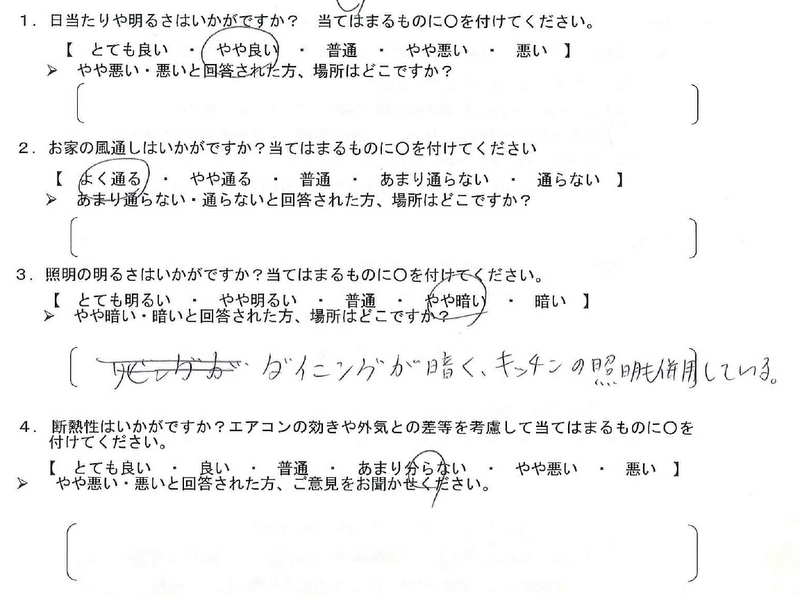 １．日当たりや明るさはいかがですか？　当てはまるものに〇を付けてください。
【　とても良い　・　やや良い　・　普通　・　やや悪い　・　悪い　】
➢　やや悪い・悪いと回答された方、場所はどこですか？
２．お家の風通しはいかがですか？当てはまるものに〇を付けてください
【　よく通る　・　やや通る　・　普通　・　あまり通らない　・　通らない　】
➢　あまり通らない・通らないと回答された方、場所はどこですか？
３．照明の明るさはいかがですか？当てはまるものに〇を付けてください。
【　とても明るい　・　やや明るい　・　普通　・　やや暗い　・　暗い　】
➢　やや暗い・暗いと回答された方、場所はどこですか？
ダイニングが暗く、キッチンの照明も併用している。
４．断熱性はいかがですか？エアコンの効きや外気との差等を考慮して当てはまるものに〇を
付けてください。
【　とても良い　・　良い　・　普通　・　あまり分らない　・　やや悪い　・　悪い　】
➢　やや悪い・悪いと回答された方、ご意見をお聞かせください。